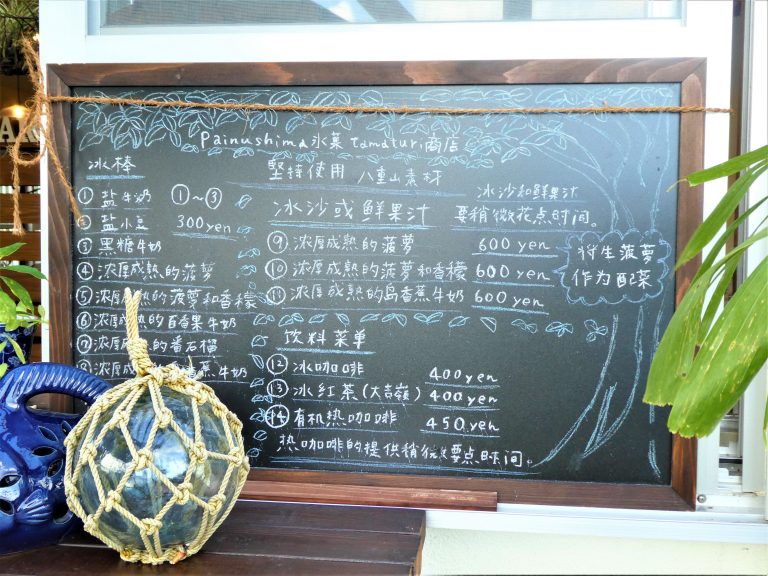 Painushima 氷菓 tamaturi 商店
堅持使用 八重山素材
冰棒
① 盐牛奶 ①~③
② 盐小豆 300yen
③ 黑糖牛奶
④ 浓厚成熟的菠萝
⑤ 浓厚成熟的菠萝和香檬
⑥ 浓厚成熟的百香果牛奶
⑦ 浓厚成熟的番石榴
浓厚 蕉牛奶
冰沙和鲜果汁
冰沙或鲜果汁 要稍微花点时间。
⑨ 浓厚成熟的菠萝 600yen
⑩ 浓厚成熟的菠萝和香檬 600yen
⑪ 浓厚成熟的岛香蕉牛奶 600yen
将生菠萝
作为配菜
饮料菜单
⑫ 冰咖啡 400yen
⑬ 冰红茶(大吉嶺) 400yen
⑭ 有机热咖啡 450yen
热咖啡的提供稍微要点时间。